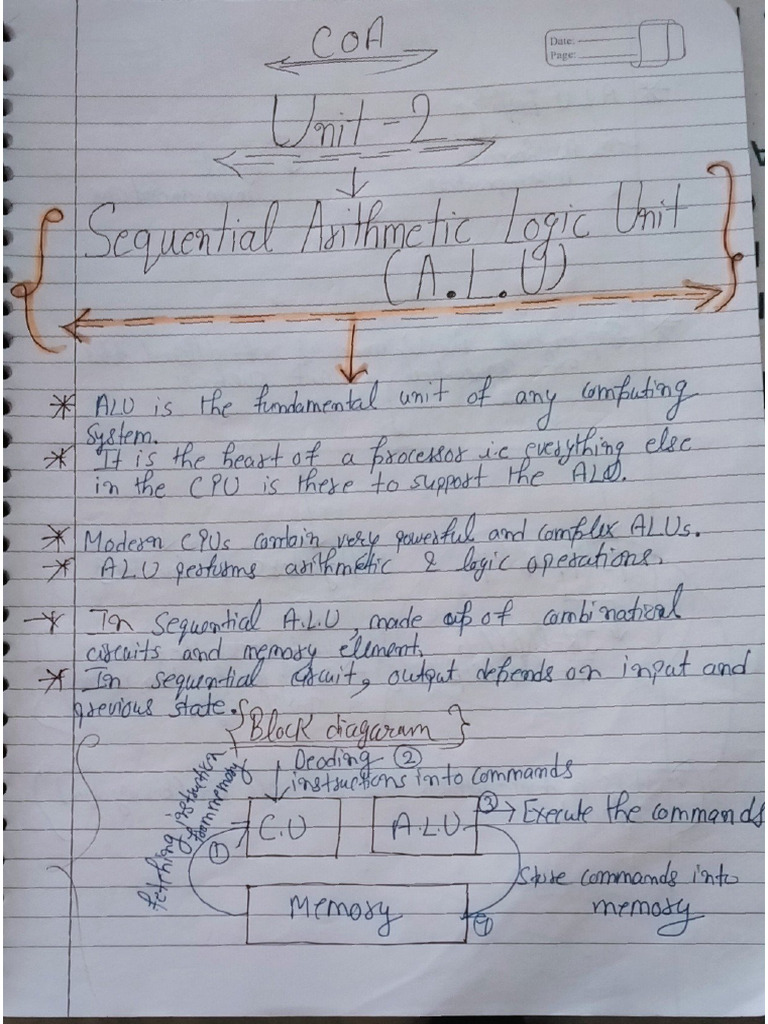 COA
Date:
Page:
Unit-2
Sequential Arithmetic Logic Unit
(A.L.U)
* ALU is the fundamental unit of any computing
system.
* It is the heart of a processor i.e everything else
in the CPU is there to support the ALU.
* Modern CPUs contain very powerful and complex ALUs.
* ALU performs arithmetic & logic operations.
* In Sequential A.L.U, made up of combinatical
circuits and memory element.
* In sequential circuit, output depends on input and
previous state.
{Block diagaram}
Decoding ②
instructions into commands
fetching instruction
from memory
①
C.U
A.L.U
③ → Execute the commands
Store commands into
memory
Memory
④